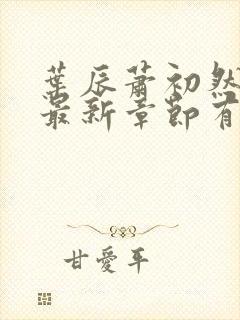 葉辰蕭初然
最新章節有
甘愛平